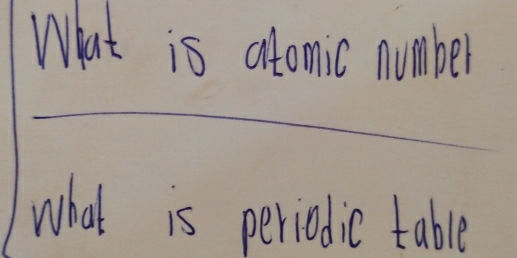 What is atomic number
What is periodic table